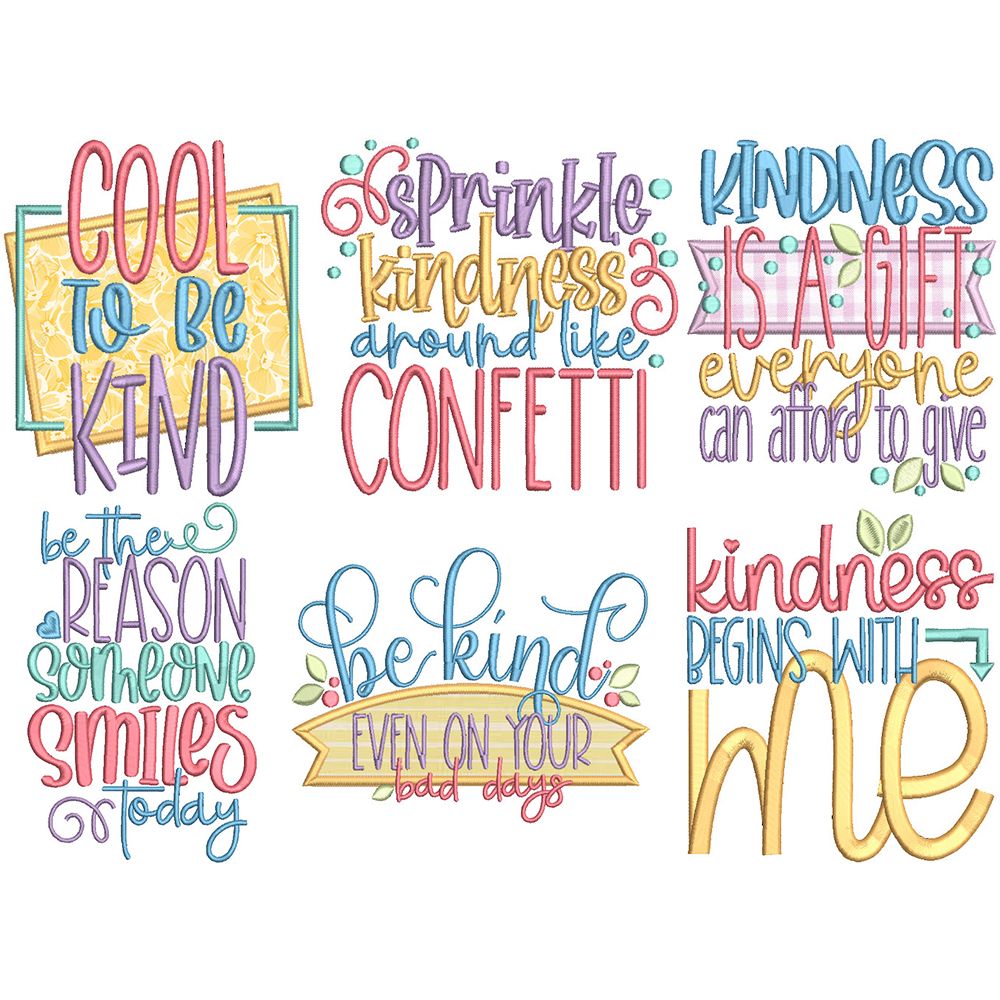 COOL
TO BE
KIND
sprinkle
kindness
around like
CONFETTI
KINDNESS
IS A GIFT
everyone
can afford to give
be the
REASON
someone
smiles
today
be kind
EVEN ON YOUR
bad days
kindness
BEGINS WITH
me